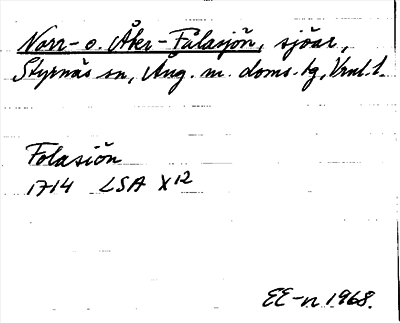 Norr- o. Åker-Falasjön, sjöar,
Styrnäs sn, Ång. m. doms. tg, Vnl. l.
Folasiön
1714 LSA X12
EE-n 1968.